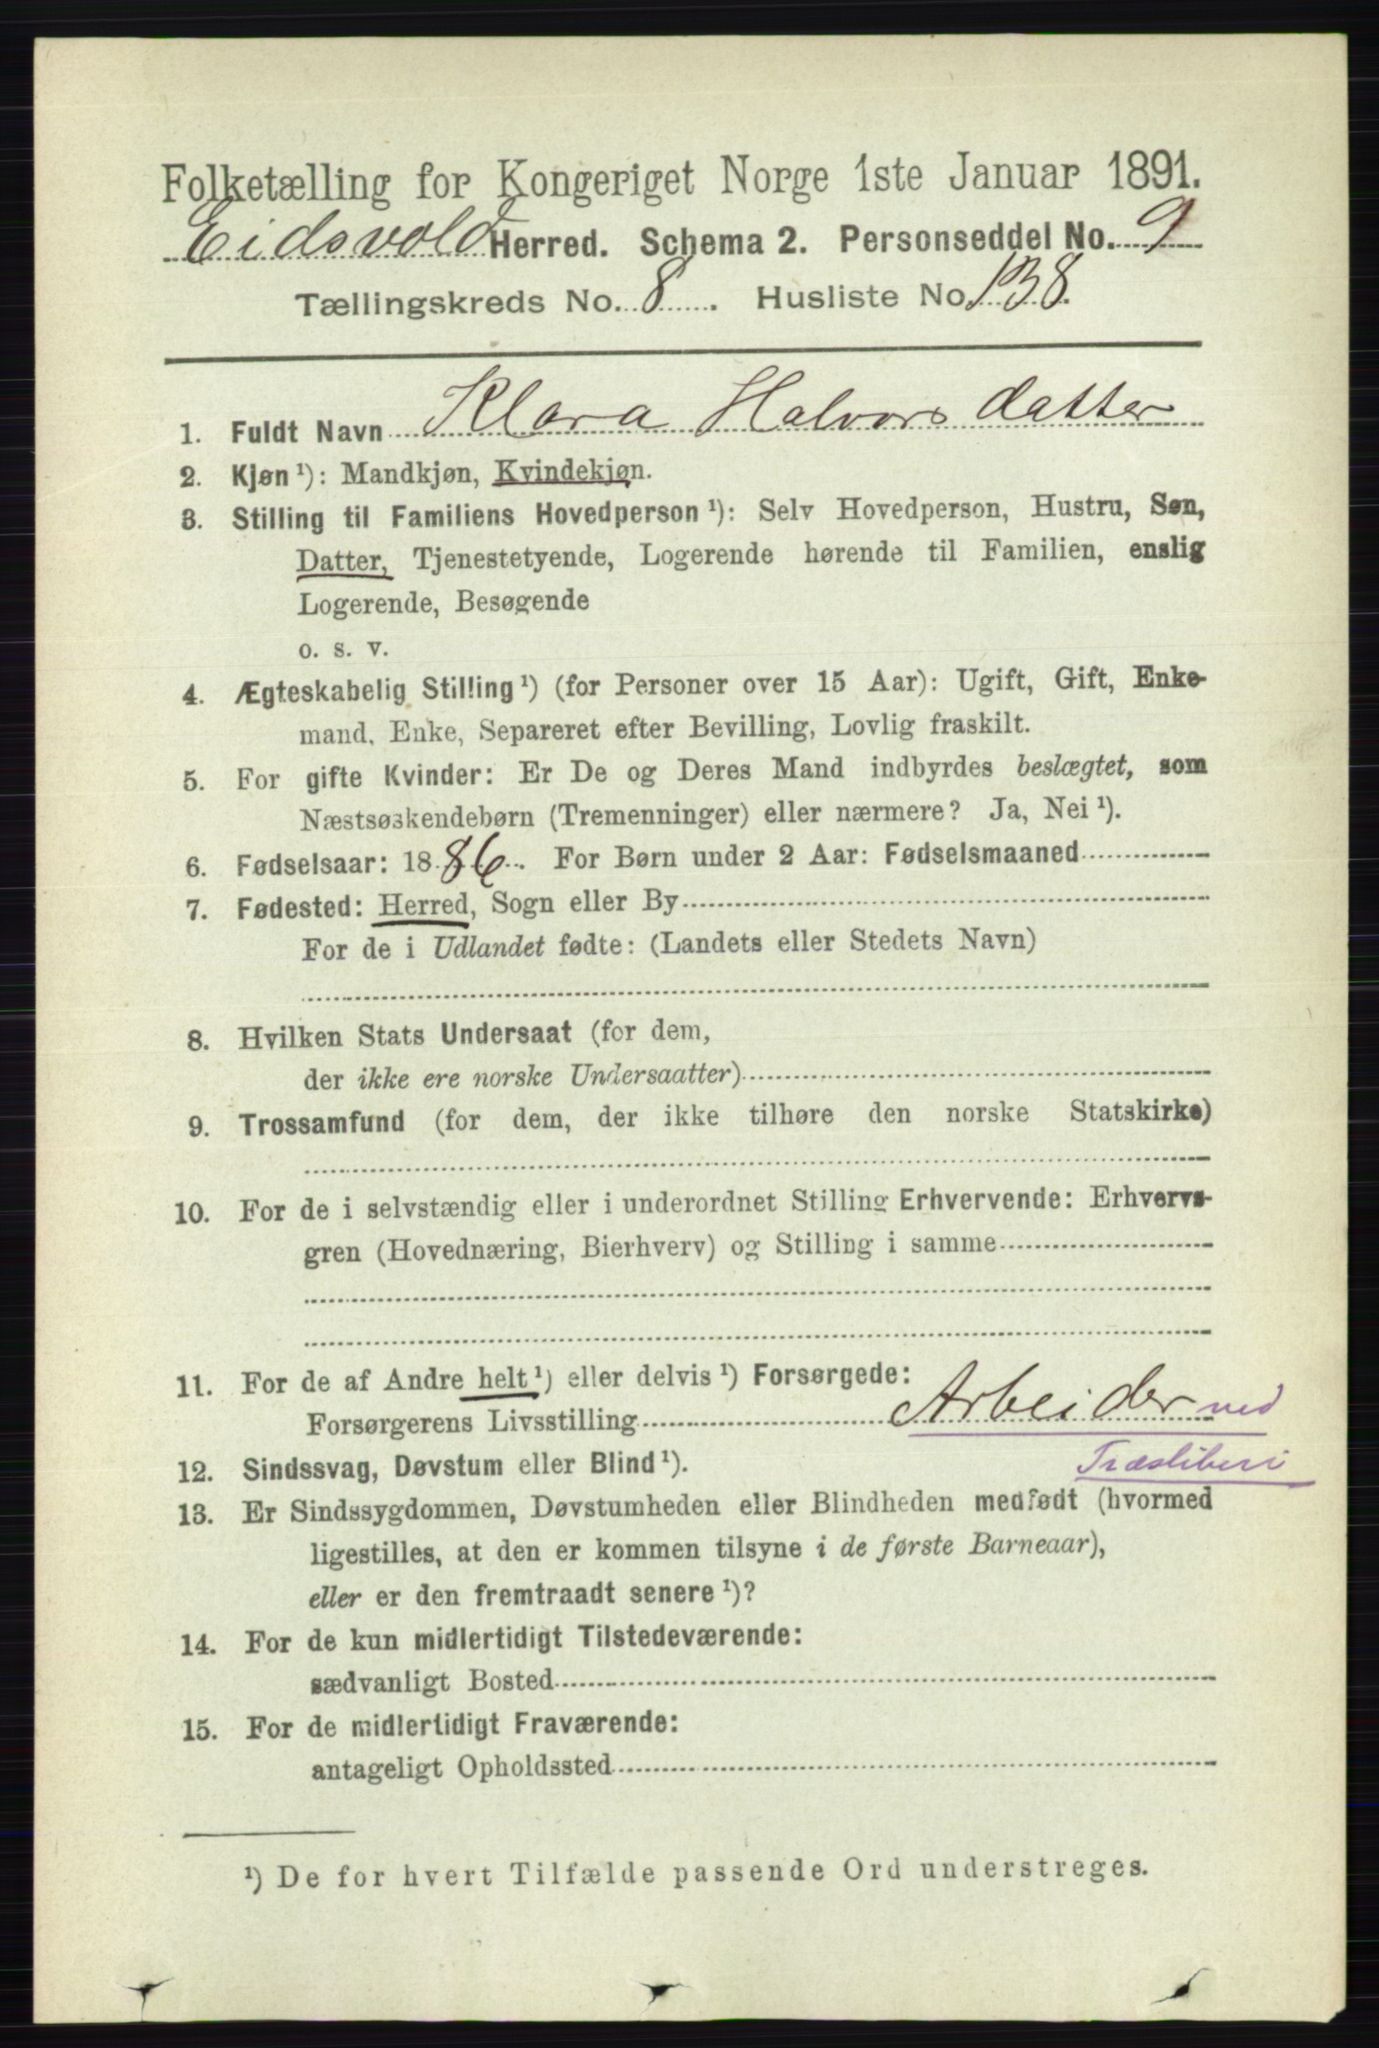 Folketælling for Kongeriget Norge 1ste Januar 1891.
Eidsvold Herred. Schema 2. Personseddel No. 9
Tællingskreds No. 8. Husliste No. 138.
1. Fuldt Navn Klara Halvorsdatter
2. Kjøn ¹): Mandkjøn, Kvindekjøn.
3. Stilling til Familiens Hovedperson ¹): Selv Hovedperson, Hustru, Søn,
Datter, Tjenestetyende, Logerende hørende til Familien, enslig
Logerende, Besøgende
o. s. v.
4. Ægteskabelig Stilling ¹) (for Personer over 15 Aar): Ugift, Gift, Enke-
mand, Enke, Separeret efter Bevilling, Lovlig fraskilt.
5. For gifte Kvinder: Er De og Deres Mand indbyrdes beslægtet, som
Næstsøskendebørn (Tremenninger) eller nærmere? Ja, Nei ¹).
6. Fødselsaar: 1886. For Børn under 2 Aar: Fødselsmaaned
7. Fødested: Herred, Sogn eller By
For de i Udlandet fødte: (Landets eller Stedets Navn)
8. Hvilken Stats Undersaat (for dem,
der ikke ere norske Undersaatter)
9. Trossamfund (for dem, der ikke tilhøre den norske Statskirke)
10. For de i selvstændig eller i underordnet Stilling Erhvervende: Erhvervs-
gren (Hovednæring, Bierhverv) og Stilling i samme
11. For de af Andre helt ¹) eller delvis ¹) Forsørgede:
Forsørgerens Livsstilling Arbeider ved
Træsliberi
12. Sindssvag, Døvstum eller Blind ¹).
13. Er Sindssygdommen, Døvstumheden eller Blindheden medfødt (hvormed
ligestilles, at den er kommen tilsyne i de første Barneaar),
eller er den fremtraadt senere ¹)?
14. For de kun midlertidigt Tilstedeværende:
sædvanligt Bosted
15. For de midlertidigt Fraværende:
antageligt Opholdssted
¹) De for hvert Tilfælde passende Ord understreges.